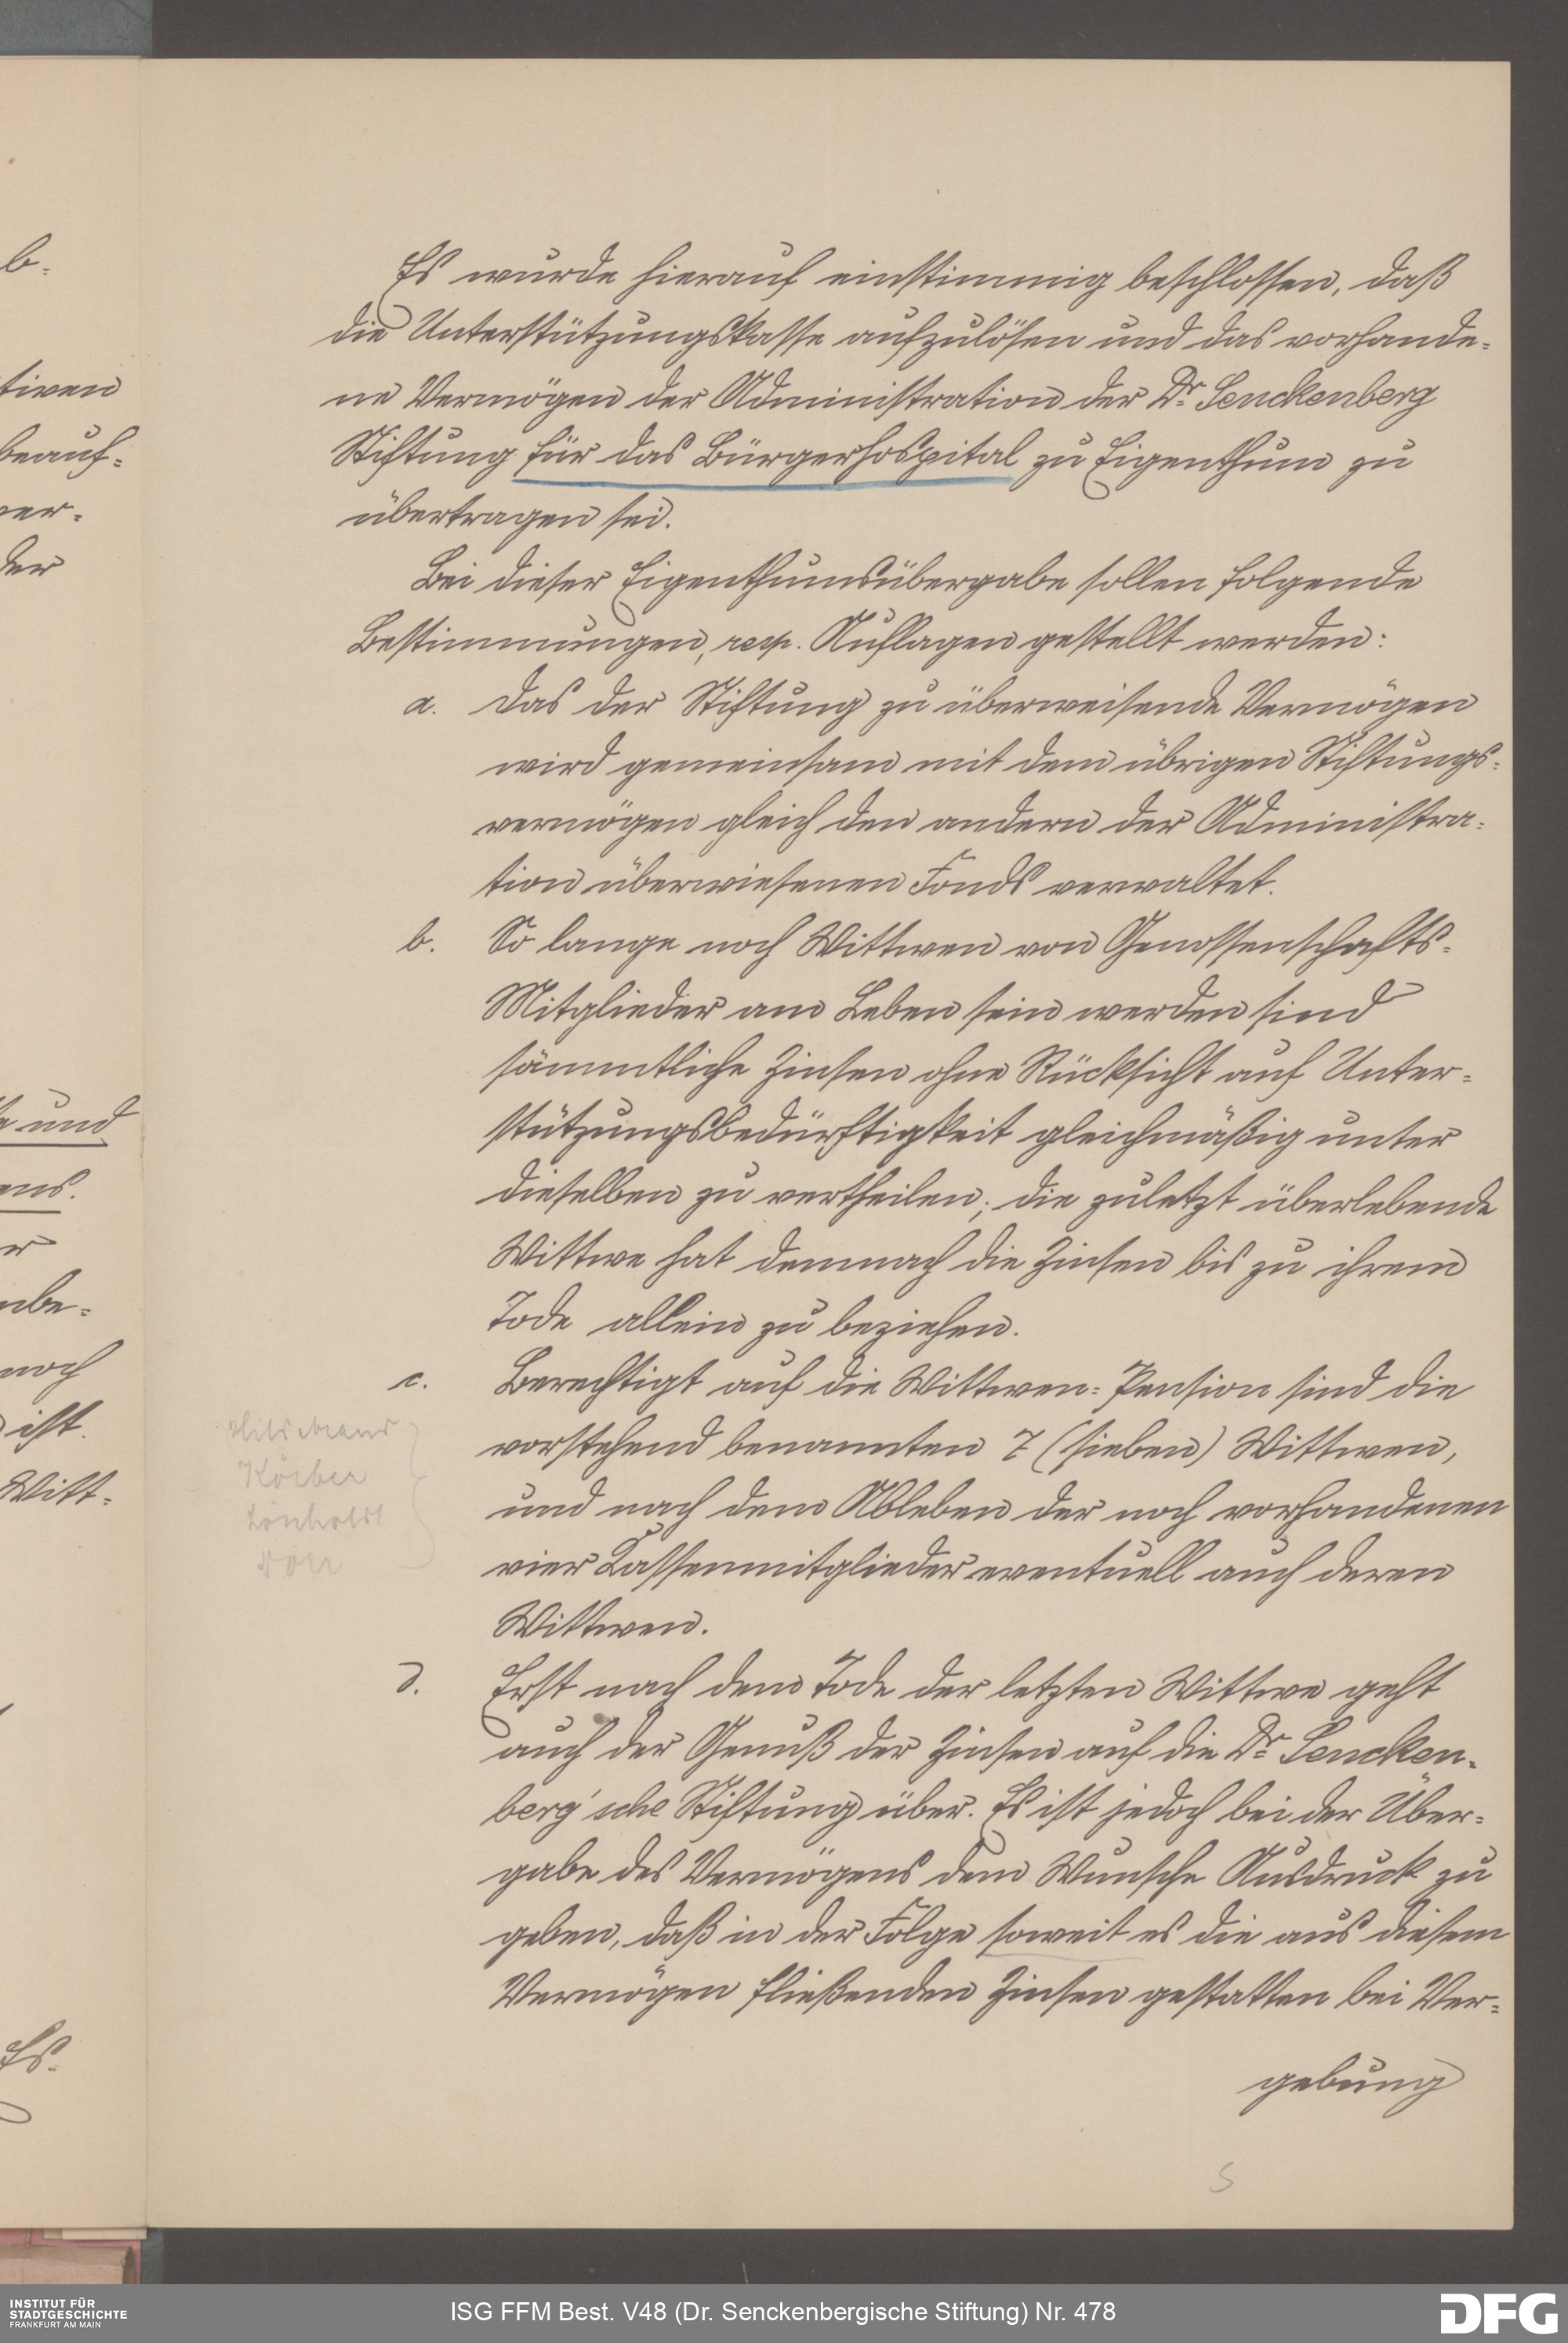 b-
tiven
beauf-
ver-
der
und
ens.
er
nbe-
noch
ist.
Witt-
Es-
Es wurde hierauf einstimmig beschlossen, daß
die Unterstützungskasse aufzulösen und das vorhande-
ne Vermögen der Administration der Dr. Senckenberg
Stiftung für das Bürgerhospital zu Eigenthum zu
übertragen sei.
Bei dieser Eigenthumsübergabe sollen folgende
Bestimmungen, resp. Auflagen gestellt werden:
a. Das der Stiftung zu überweisende Vermögen
wird gemeinsam mit dem übrigen Stiftungs-
vermögen gleich den andern der Administra-
tion überwiesenen Fonds verwaltet.
b. So lange noch Wittwen von Genossenschafts-
Mitglieder am Leben sein werden sind
sämmtliche Zinsen ohne Rücksicht auf Unter-
stützungsbedürftigkeit gleichmäßig unter
dieselben zu vertheilen; die zuletzt überlebende
Wittwe hat demnach die Zinsen bis zu ihrem
Tode allein zu beziehen.
c. Berechtigt auf die Wittwen-Pension sind die
vorstehend benannten 7 (sieben) Wittwen,
und nach dem Ableben der noch vorhandenen
vier Kassenmitglieder eventuell auch deren
Wittwen.
Körber
Lönholdt
d. Erst nach dem Tode der letzten Wittwe geht
auch der Genuß der Zinsen auf die Dr. Sencken-
berg'sche Stiftung über. Es ist jedoch bei der Über-
gabe des Vermögens dem Wunsche Ausdruck zu
geben, daß in der Folge soweit es die aus diesem
Vermögen fließenden Zinsen gestatten bei Ver-
gebung
5
INSTITUT FÜR
STADTGESCHICHTE
FRANKFURT AM MAIN
ISG FFM Best. V48 (Dr. Senckenbergische Stiftung) Nr. 478
DFG